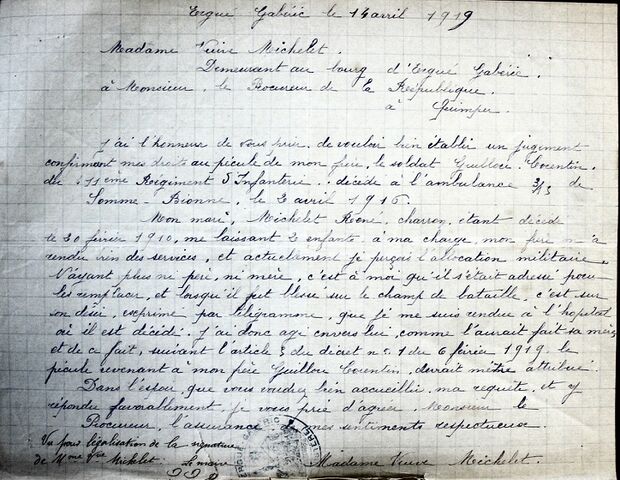 Ergué Gabéric le 14 avril 1919
Madame Veuve Michelet.
Demeurant au bourg d'Ergué Gabéric.
à Monsieur le Procureur de la République.
à Quimper.
J'ai l'honneur de vous prier, de vouloir bien établir un jugement
confirmant mes droits au pécule de mon frère, le soldat Guillou Corentin.
du 11ème Régiment d'Infanterie. décédé à l'ambulance 3/13 de
Somme-Bionne, le 2 avril 1916.
Mon mari, Michelet René, charron, étant décédé
le 20 février 1910, me laissant 2 enfants à ma charge, mon frère m'a
rendu bien des services, et actuellement je perçois l'allocation militaire.
N'ayant plus ni père, ni mère, c'est à moi qu'il s'était adressé pour
les remplacer, et lorsqu'il fut blessé sur le champ de bataille, c'est sur
son désir, exprimé par télégramme, que je me suis rendue à l'hopital
où il est décédé. J'ai donc agi envers lui, comme l'aurait fait sa mère,
et de ce fait, suivant l'article 3 du décret n° 1 du 6 février 1919. le
pécule revenant à mon frère Guillou Corentin, devrait m'être attribué.
Dans l'espoir que vous voudrez bien accueillir ma requête, et y
répondre favorablement, je vous prie d'agréer, Monsieur le
Procureur, l'assurance de mes sentiments respectueux.
Vu pour légalisation de la signature
de Mme Vve Michelet Le maire
Madame Veuve Michelet.